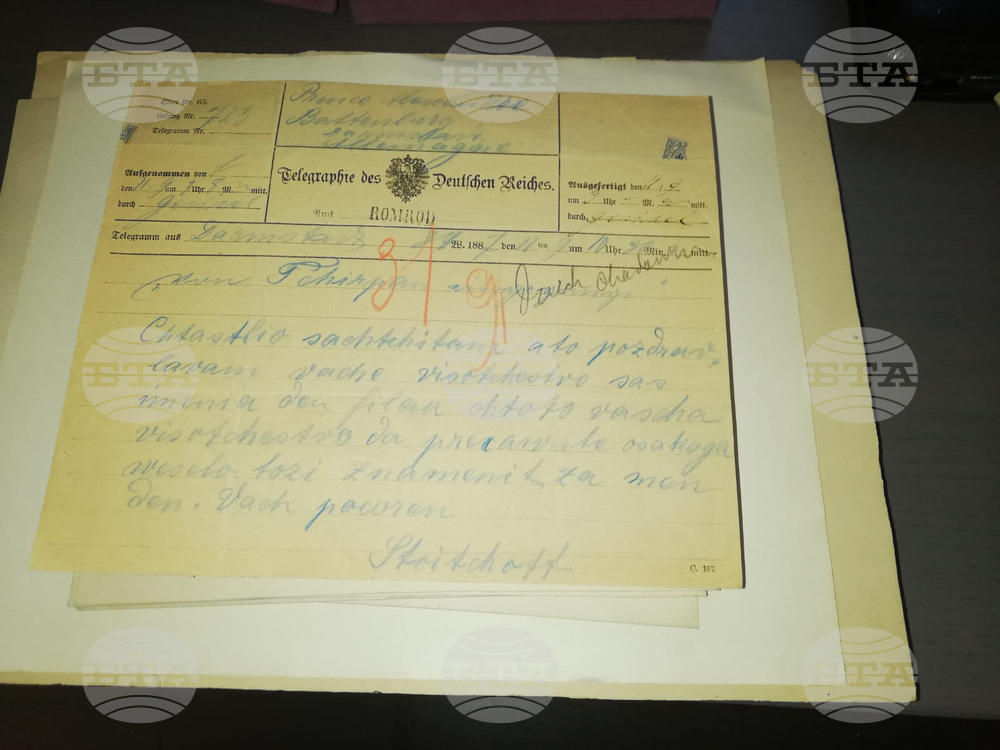 БТА БТА БТА
Blatt Nr. 65.
Leitung Nr. 723
Telegramm Nr.
Prince Alexandre
Battenberg
Darmstadt
Allemagne
Aufgenommen von
den 11 um Uhr M. mitt.
durch
Telegraphie des Deutschen Reiches.
Amt ROMROD
Ausgefertigt den
um Uhr M. mitt.
durch
Telegramm aus Darmstadt W. 188 den 11 um 10 Uhr Min. mitt.
von Tchirpan
31 9
Chtastlio sachtchitam ato pozdrav
lavam vache visotchestvo sas
imenia den jilau chtoto vascha
visotchestvo da precawate osakoga
weselo tozi znamenit za men
den. Vach pocoren
Stoitchoff
C. 187.
БТА БТА БТА
БТА БТА БТА